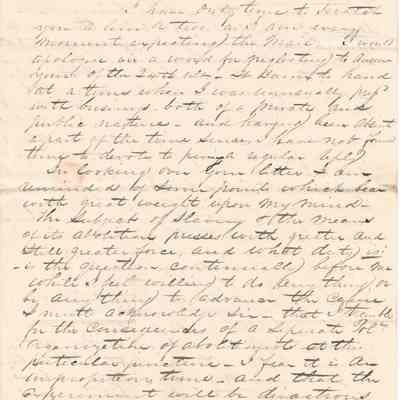 I have only time to scratch
you a line or two as I am every
moment expecting the Mail. I would
apologise in a word for neglecting to answer
yours of the 24th ult. It came to hand
at a time when I was unusually
with business both of a private and
public nature - and having been absent
a part of the time since, I have not
time to devote to a regular
In looking over your letter I am
reminded of some points which bear
with great weight upon my mind -
The Subject of Slavery & the means
of its abolition presses with greater and
still greater force, and what duty is -
is the question continually before me
While I feel willing to do any thing or
by any thing to advance the cause
I must acknowledge Sir - that I tremble
for the consequences of a Separate
at this
particular juncture - I fear it is an
time - and that the
experiment will be disastrous